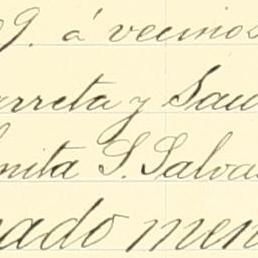 9. á vecinos
arreta y Sau
nita S. Salva
ado men